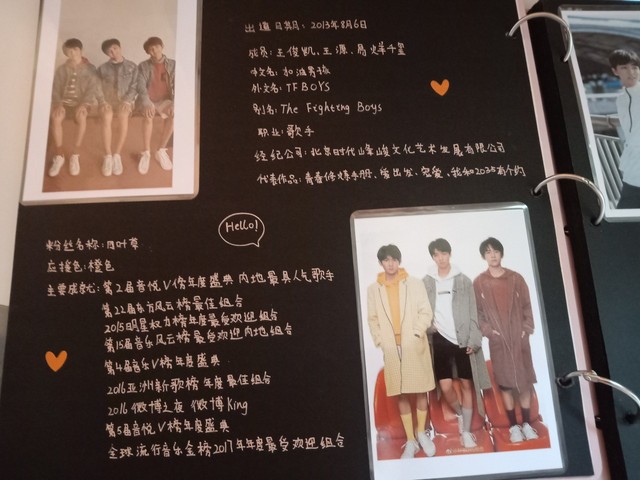 出道日期：2013年8月6日
成员：王俊凯、王源、易烊千玺
中文名：加油男孩
外文名：TFBOYS
别名：The Fighting Boys
职业：歌手
经纪公司：北京时代峰峻文化艺术发展有限公司
代表作品：青春修炼手册、宠爱、我和2035有个约
Hello!
粉丝名称：四叶草
应援色：橙色
主要成就：第2届音悦V榜年度盛典 内地最具人气歌手
第22届东方风云榜最佳组合
2015明星权力榜年度最受欢迎组合
第15届音乐风云榜最受欢迎内地组合
第4届音乐V榜年度盛典
2016亚洲新歌榜年度最佳组合
2016微博之夜 微博King
第5届音悦V榜年度盛典
全球流行音乐金榜2017年年度最受欢迎组合